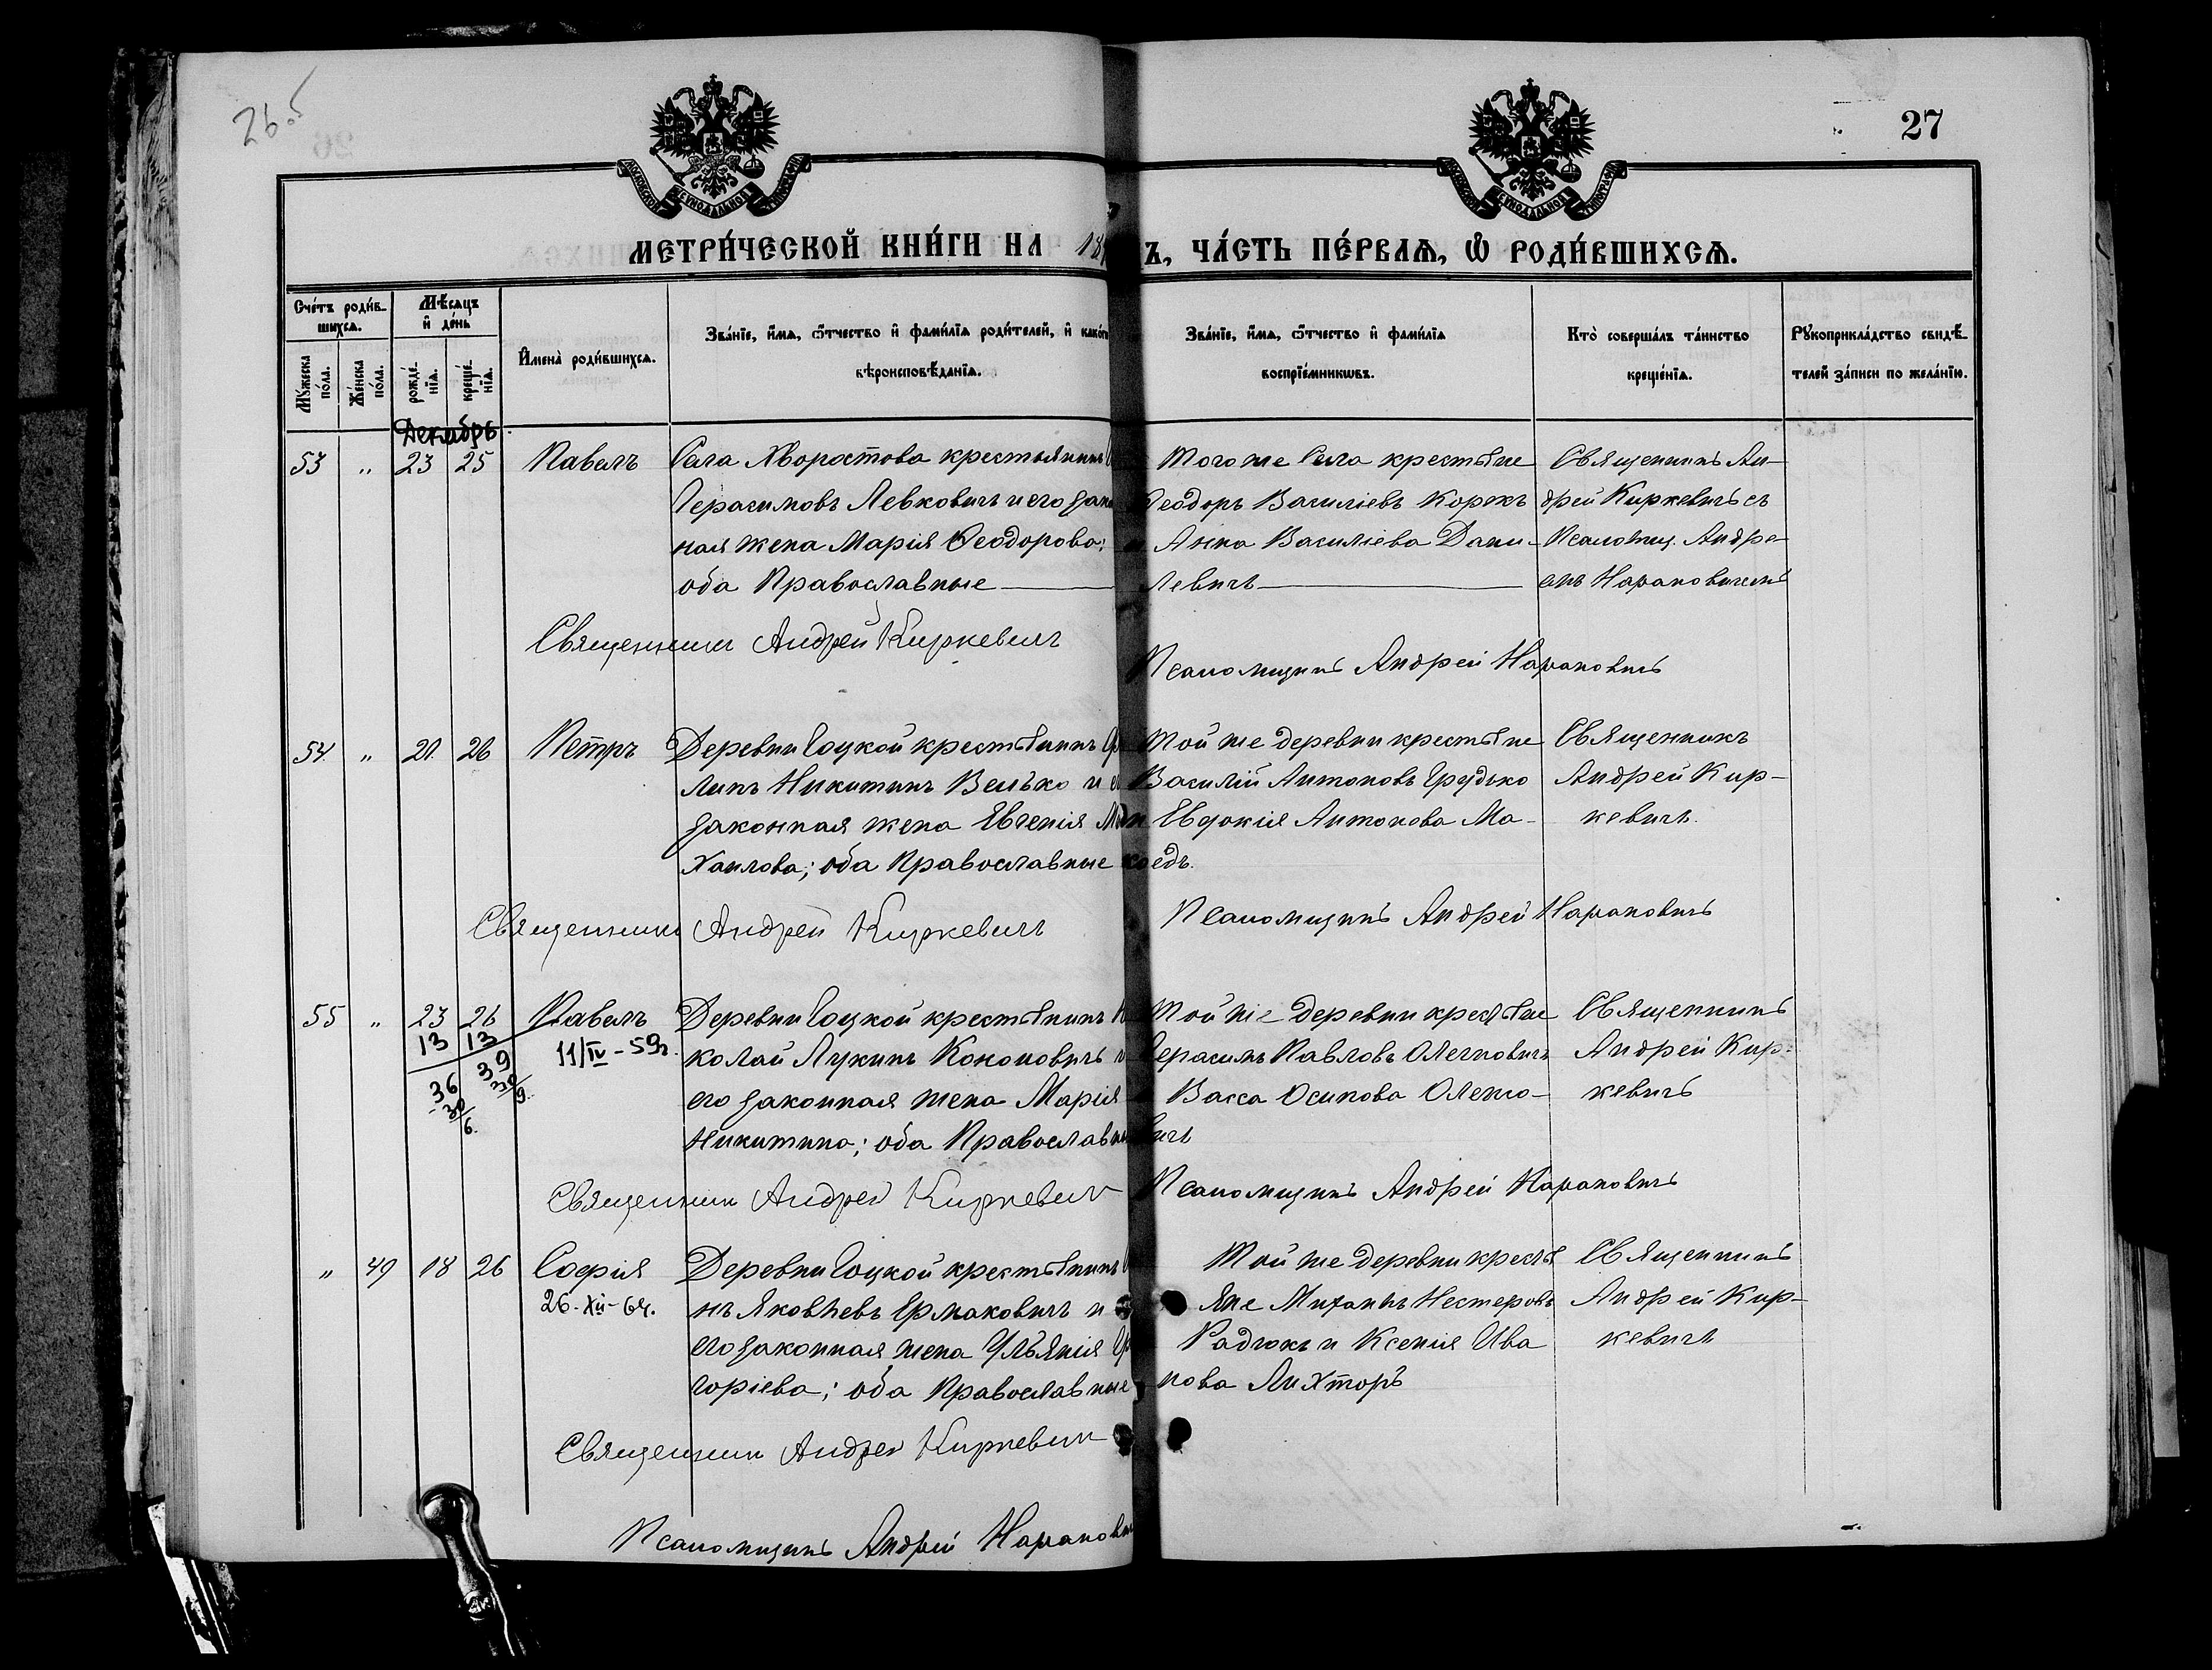 26.5
27
МЕТРИ́ЧЕСКОЙ КНИ́ГИ НА 18
Ъ, ЧА́СТЬ ПЕ́РВАѦ, Ѿ РОДИ́ВШИХСѦ.
Сче́тъ роди́в-
шихсѧ.
Мѣ́сѧцъ
и҆ де́нь
Му́жеска
по́ла.
Же́нска
по́ла.
рожде́-
нїѧ.
креще́-
нїѧ.
И҆мена̀ роди́вшихсѧ.
Зва́нїе, и҆́мѧ, ѻ҆́тчество и҆ фами́лїѧ роди́телей, и҆ како́г
вѣроисповѣ́данїѧ.
Зва́нїе, и҆́мѧ, ѻ҆́тчество и҆ фами́лїѧ
воспрїе́мникѡвъ.
Кто̀ соверша́лъ та́инство
креще́нїѧ.
Рꙋкоприкла́дство свидѣ́-
телей за́писи по жела́нїю.
Декабрь
53 " 23 25 Павелъ Села Хворостова крестьянинъ
Герасимовъ Левковичъ и его зако
ная жена Марія Ѳеодорова;
оба Православные
Того же Села крестьяне
Ѳеодоръ Василіевъ Корекъ
и Анна Василіева Дани-
левичъ
Священникъ Ан-
дрей Киркевичъ съ
Псаломщ. Андре-
емъ Нарановичемъ
Священникъ Андрей Киркевичъ
Псаломщикъ Андрей Нарановичъ
54. " 21 26 Петръ Деревни Гоцкой крестьянинъ
липъ Никитинъ Велько и е
законная жена Евгенія Ми
хаилова; оба Православные
Той же деревни крестьяне
Василій Антоновъ Грудько
и Евдокія Антонова Ма-
коедъ.
Священникъ
Андрей Кир-
кевичъ.
Священникъ Андрей Киркевичъ
Псаломщикъ Андрей Нарановичъ
55 " 23 26 Павелъ Деревни Гоцкой крестьянинъ Ни
13 13
11/IV-59г.
36 39
30 30
6. 9.
колай Лукинъ Кононовичъ и
его законная жена Марія
Никитина; оба Православны
Той же деревни крестьяне
Герасимъ Павловъ Олехновичъ
и Васса Осипова Олехно-
вичъ
Священникъ
Андрей Кир-
кевичъ
Священникъ Андрей Киркевичъ
Псаломщикъ Андрей Нарановичъ
" 49 18 26 Софія Деревни Гоцкой крестьянинъ
26-XII-64.
нъ Яковлевъ Ермаковичъ и
его законная жена Ульянія Гри
горіева; оба Православные
Той же деревни кресть
яне Михаилъ Нестеровъ
Радюкъ и Ксенія Ива
нова Лихторъ
Священникъ
Андрей Кир-
кевичъ
Священникъ Андрей Киркевичъ
Псаломщикъ Андрей Наранови